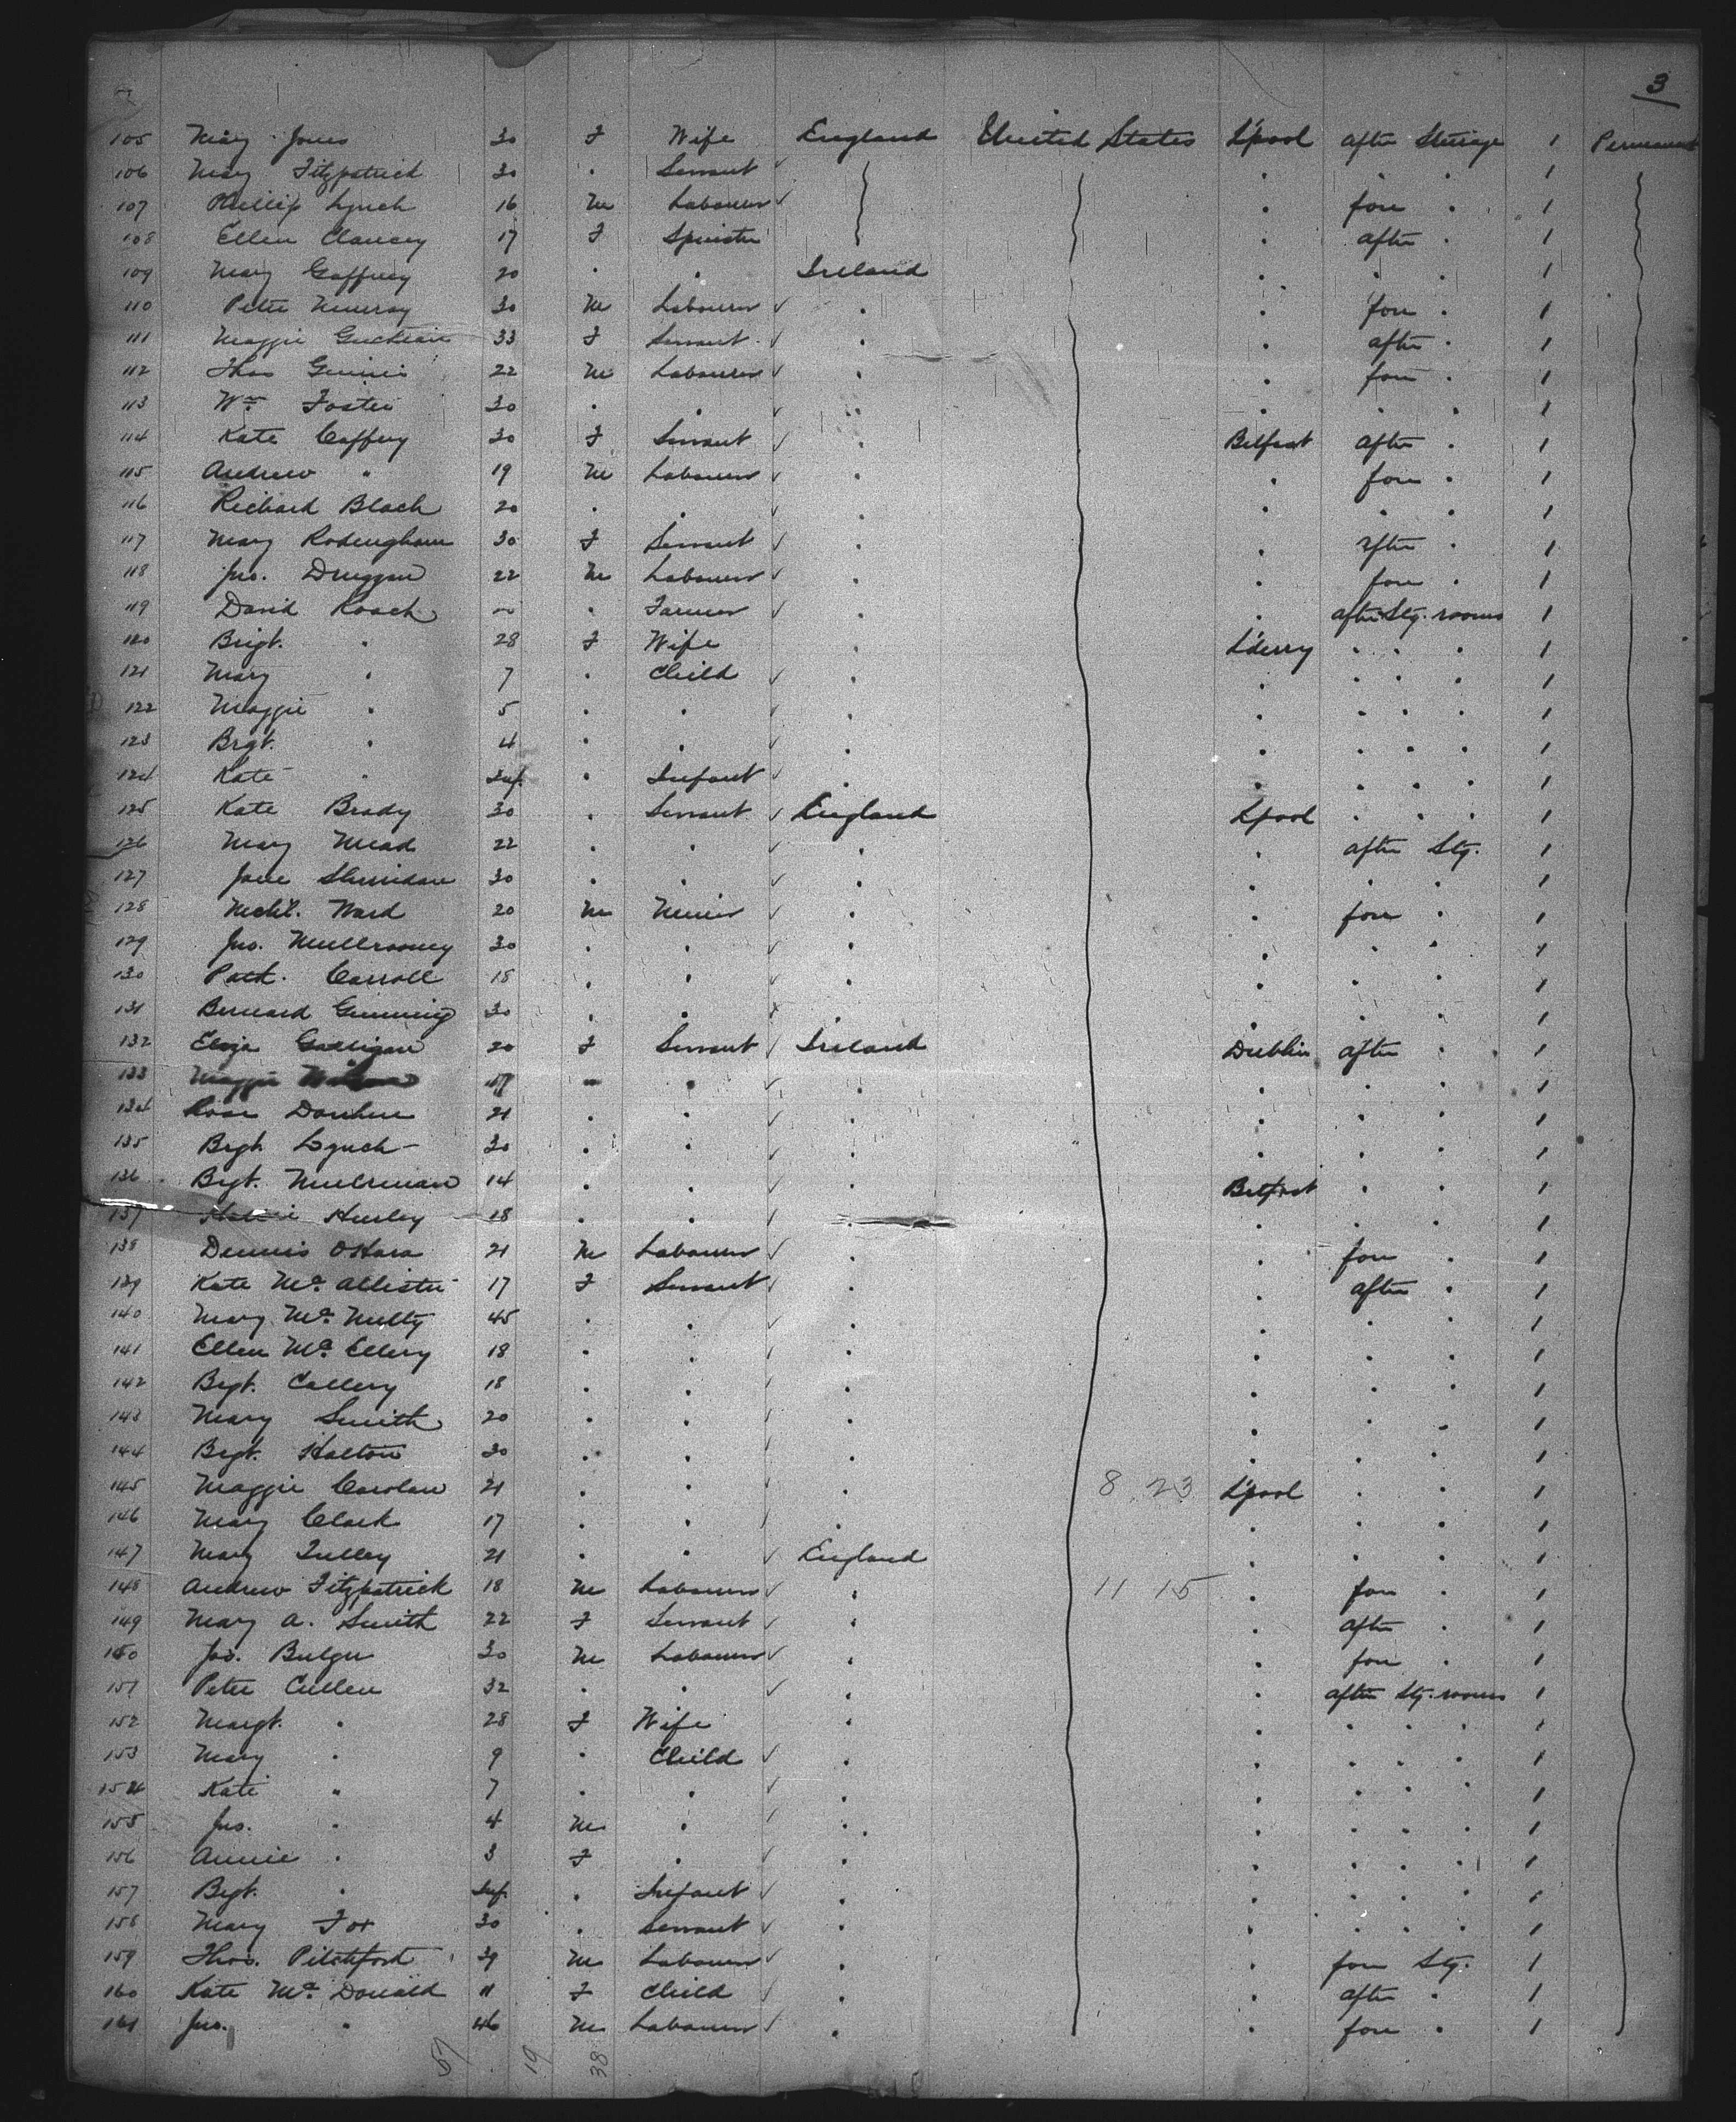 3
105 Mary Jones 30 F Wife England United States L'pool after Steerage 1 Permanent
106 Mary Fitzpatrick 30 . Servant . . . 1
107 Phillip Lynch 16 M Labourer . fore . 1
108 Ellen Clancey 17 F Spinster . after . 1
109 Mary Gaffney 20 . . Ireland . . . 1
110 Peter Murray 30 M Labourer . . fore . 1
111 Maggie 33 F Servant . . after . 1
112 Thos 22 M Labourer . . fore . 1
113 Wm Foster 30 . . . . . . 1
114 Kate Caffery 30 F Servant . Belfast after . 1
115 Andrew " 19 M Labourer . . fore . 1
116 Richard Black 20 . . . . . . 1
117 Mary Rodingham 30 F Servant . . after . 1
118 Jno. Druggan 22 M Labourer . . fore . 1
119 David Roach . Farmer . . after Stg. rooms 1
120 Brigt. " 28 F Wife . L'derry . . . 1
121 Mary " 7 . Child . . . . . 1
122 Maggie " 5 . . . . . . . 1
123 Brgt. " 4 . . . . . . . 1
124 Kate " Inf. . Infant . . . . . 1
125 Kate Brady 30 . Servant England L'pool . . . 1
126 Mary Mead 22 . . . . after Stg. 1
127 Jane Sheridan 30 . . . . . . 1
128 Michl. Ward 20 M Miner . . fore . 1
129 Jno. Mullrooney 30 . . . . . . 1
130 Patk. Carroll 18 . . . . . . 1
131 Bernard 30 . . . . . . 1
132 Eliza Galligan 20 F Servant Ireland Dublin after . 1
133 Maggie . . . . . 1
134 Rose 21 . . . . . . 1
135 Brgt Lynch 30 . . . . . . 1
136 Bgt. 14 . . . Belfast . . 1
137 Hurley 18 . . . . . . 1
138 Dennis O'Hara 21 M Labourer . . fore . 1
139 Kate Mc Allister 17 F Servant . . after . 1
140 Mary Mc Nulty 45 . . . . . . 1
141 Ellen Mc Ellery 18 . . . . . . 1
142 Bgt. Callery 18 . . . . . . 1
143 Mary Smith 20 . . . . . . 1
144 Brgt. Halton 30 . . . . . . 1
145 Maggie Carolan 21 . . . 8 23 L'pool . . 1
146 Mary Clark 17 . . . . . . 1
147 Mary Tulley 21 . . England . . . 1
148 Andrew Fitzpatrick 18 M Labourer . 11 15 . fore . 1
149 Mary A. Smith 22 F Servant . . after . 1
150 Jas. Bulger 30 M Labourer . . fore . 1
151 Peter Cullen 32 . . . . after Stg. rooms 1
152 Margt. " 28 F Wife . . . . . 1
153 Mary " 9 . Child . . . . . 1
154 Kate " 7 . . . . . . . 1
155 Jno. " 4 M . . . . . . 1
156 Annie " 3 F . . . . . . 1
157 Bgt. " Inf. . Infant . . . . . 1
158 Mary Fox 30 . Servant . . . . . 1
159 Thos. Pitchford 39 M Labourer . . fore Stg. 1
160 Kate Mc Donald 11 F Child . . after . 1
161 Jno. " 46 M Labourer . . fore . 1
19 38